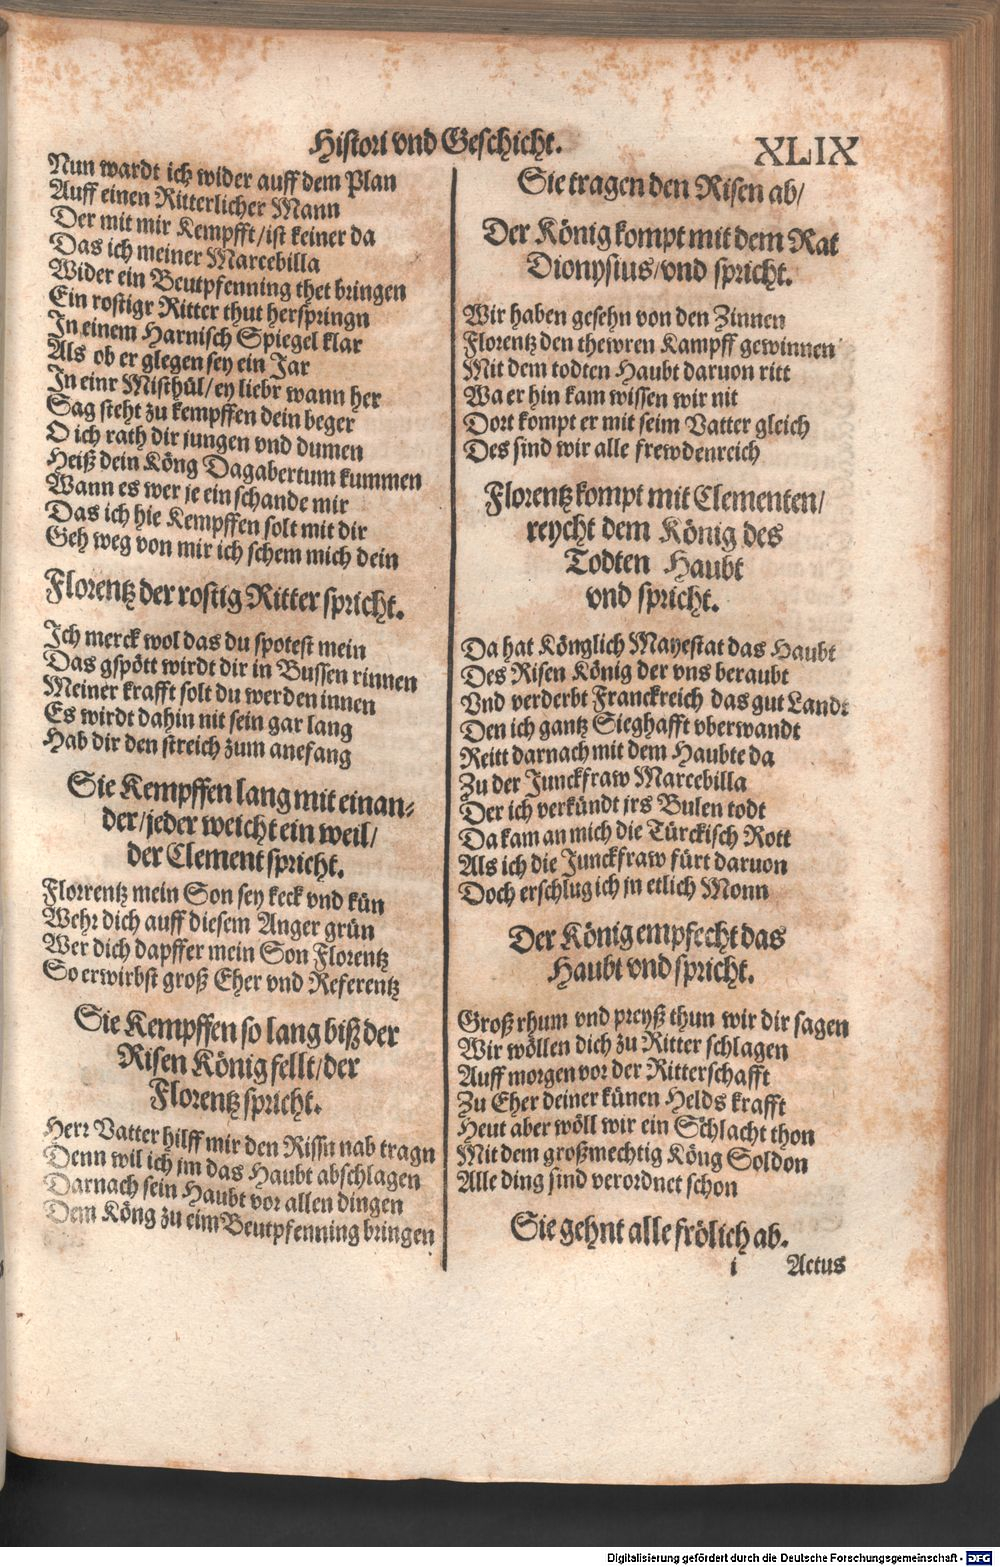 Histori vnd Geschicht.
XLIX
Nun wardt ich wider auff dem Plan
Auff einen Ritterlicher Mann
Der mit mir Kempfft/ist keiner da
Das ich meiner Marcebilla
Wider ein Beutpfenning thet bringen
Ein rostigr Ritter thut herspringn
In einem Harnisch Spiegel klar
Als ob er glegen sey ein Jar
In einr Misthül/ey liebr wann her
Sag steht zu kempffen dein beger
O ich rath dir jungen vnd dumen
Heiß dein Köng Dagabertum kummen
Wann es wer je ein schande mir
Das ich hie Kempffen solt mit dir
Geh weg von mir ich schem mich dein
Florentz der rostig Ritter spricht.
Ich merck wol das du spotest mein
Das gspött wirdt dir in Bussen rinnen
Meiner krafft solt du werden innen
Es wirdt dahin nit sein gar lang
Hab dir den streich zum anefang
Sie Kempffen lang mit einan-
der/jeder weicht ein weil/
der Clement spricht.
Florrentz mein Son sey keck vnd kün
Wehr dich auff diesem Anger grün
Wer dich dapffer mein Son Florentz
So erwirbst groß Eher vnd Referentz
Sie Kempffen so lang biß der
Risen König fellt/der
Florentz spricht.
Herr Vatter hilff mir den Rissn nab tragn
Denn wil ich jm das Haubt abschlagen
Darnach sein Haubt vor allen dingen
Dem Köng zu eim Beutpfenning bringen
Sie tragen den Risen ab/
Der König kompt mit dem Rat
Dionysius/vnd spricht.
Wir haben gesehn von den Zinnen
Florentz den thewren Kampff gewinnen
Mit dem todten Haubt daruon ritt
Wa er hin kam wissen wir nit
Dort kompt er mit seim Vatter gleich
Des sind wir alle frewdenreich
Florentz kompt mit Clementen/
reycht dem König des
Todten Haubt
vnd spricht.
Da hat Könglich Mayestat das Haubt
Des Risen König der vns beraubt
Vnd verderbt Franckreich das gut Landt
Den ich gantz Sieghafft vberwandt
Reitt darnach mit dem Haubte da
Zu der Junckfraw Marcebilla
Der ich verkündt jrs Bulen todt
Da kam an mich die Türckisch Rott
Als ich die Junckfraw fürt daruon
Doch erschlug ich jn etlich Monn
Der König empfecht das
Haubt vnd spricht.
Groß rhum vnd preyß thun wir dir sagen
Wir wöllen dich zu Ritter schlagen
Auff morgen vor der Ritterschafft
Zu Eher deiner künen Helds krafft
Heut aber wöll wir ein Schlacht thon
Mit dem großmechtig Köng Soldon
Alle ding sind verordnet schon
Sie gehnt alle frölich ab.
i Actus
Digitalisierung gefördert durch die Deutsche Forschungsgemeinschaft - DFG